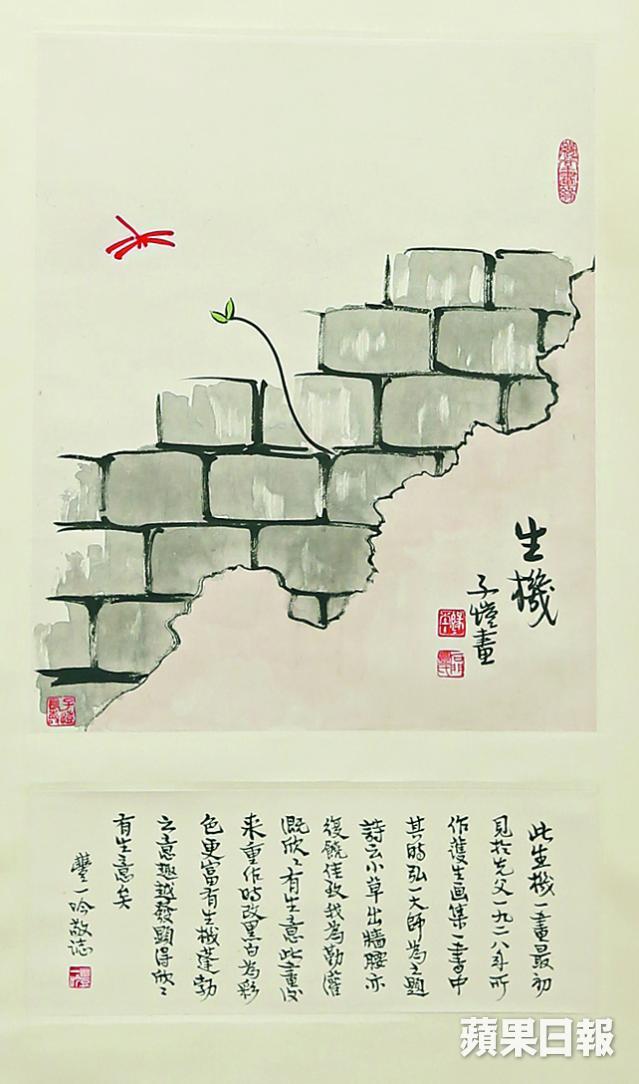 生機
子愷畫
此生機一畫最初
見於先父一九二八年所
作護生画集一書中
其時弘一大師為之題
詩云小草出牆腰亦
復饒佳致我為勤灌
溉欣〻有生意此畫後
来重作時改黑白為彩
色更富有生機蓬勃
之意趣越發顯得欣〻
有生意矣
豐一吟敬誌
蘋果日報